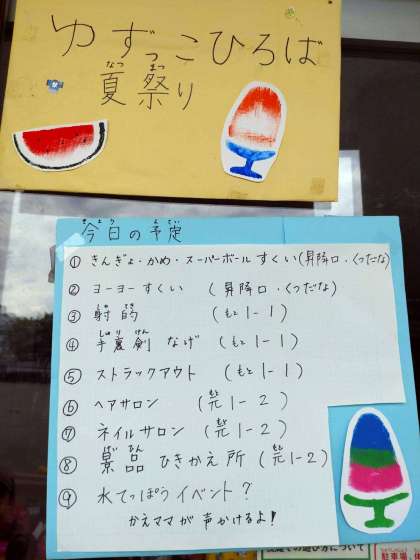 ゆずっこひろば
夏祭り
今日の予定
① きんぎょ・かめ・スーパーボールすくい(昇降口・くつだな)
② ヨーヨーすくい (昇降口・くつだな)
③ 射的 (もと1-1)
④ 手裏剣なげ (もと1-1)
⑤ ストラックアウト (もと1-1)
⑥ ヘアサロン (元1-2)
⑦ ネイルサロン (元1-2)
⑧ 景品ひきかえ所 (元1-2)
⑨ 水てっぽうイベント?
かえママが声かけるよ!